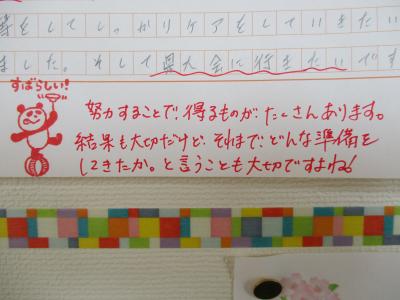 等をしてしっかりケアをしていきたい
ました。そして県大会に行きたいです
すばらしい!
努力することで得るものがたくさんあります。
結果も大切だけど、それまでどんな準備を
してきたか。と言うことも大切ですよね!